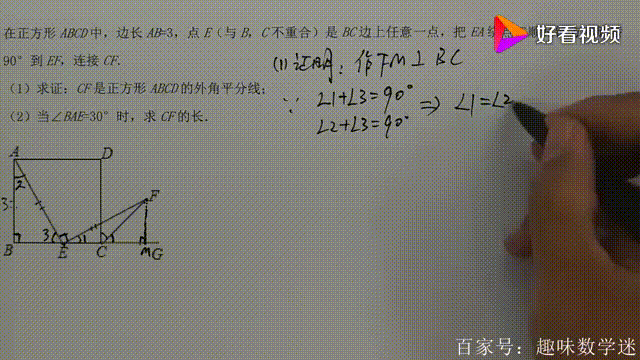 在正方形ABCD中，边长AB=3，点E（与B，C不重合）是BC边上任意一点，把EA绕
90°到EF，连接CF.
（1）求证：CF是正方形ABCD的外角平分线；
（2）当∠BAE=30°时，求CF的长.
(1) 证明：作FM⊥BC
∵ ∠1+∠3=90° ⇒ ∠1=∠2
∠2+∠3=90°
A D
2
3 F
3 1
B E C M G
好看视频
百家号：趣味数学迷